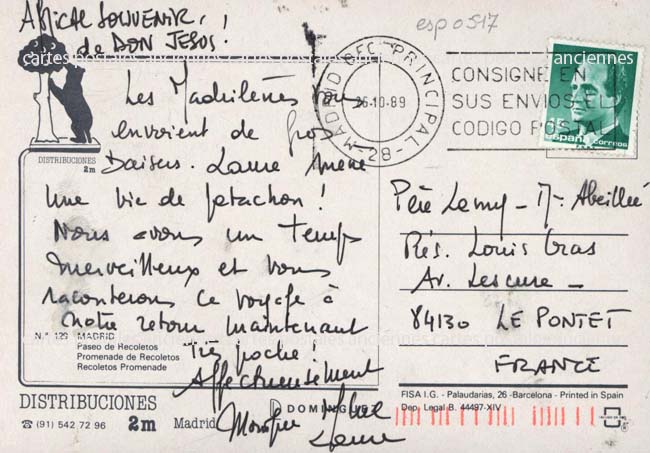 Amical SOUVENIR,!
de DON JESUS!
esp 0517
cartes postales anciennes
MADRID OFC. PRINCIPAL
-28-
26-10-89
CONSIGNE EN
SUS ENVIOS EL
CODIGO POSTAL
15
españa
correos
DISTRIBUCIONES
2m
Les Madrilènes vous
envoient de gros
Baisers. Laure mène
une vie de patachon!
Nous avons un temps
merveilleux et vous
raconterons ce voyage à
notre retour maintenant
Très proche!
Affectueusement
Monique
Laure
Père Lemy - M. Abeillé
Rés. Louis Gras
Av. Lescure -
84130 LE PONTET
FRANCE
N.º 129 MADRID
Paseo de Recoletos
Promenade de Recoletos
Recoletos Promenade
DISTRIBUCIONES
☎ (91) 542 72 96 2m Madrid
DOMINGUEZ
FISA I.G. - Palaudarias, 26 - Barcelona - Printed in Spain
Dep. Legal B. 44497-XIV